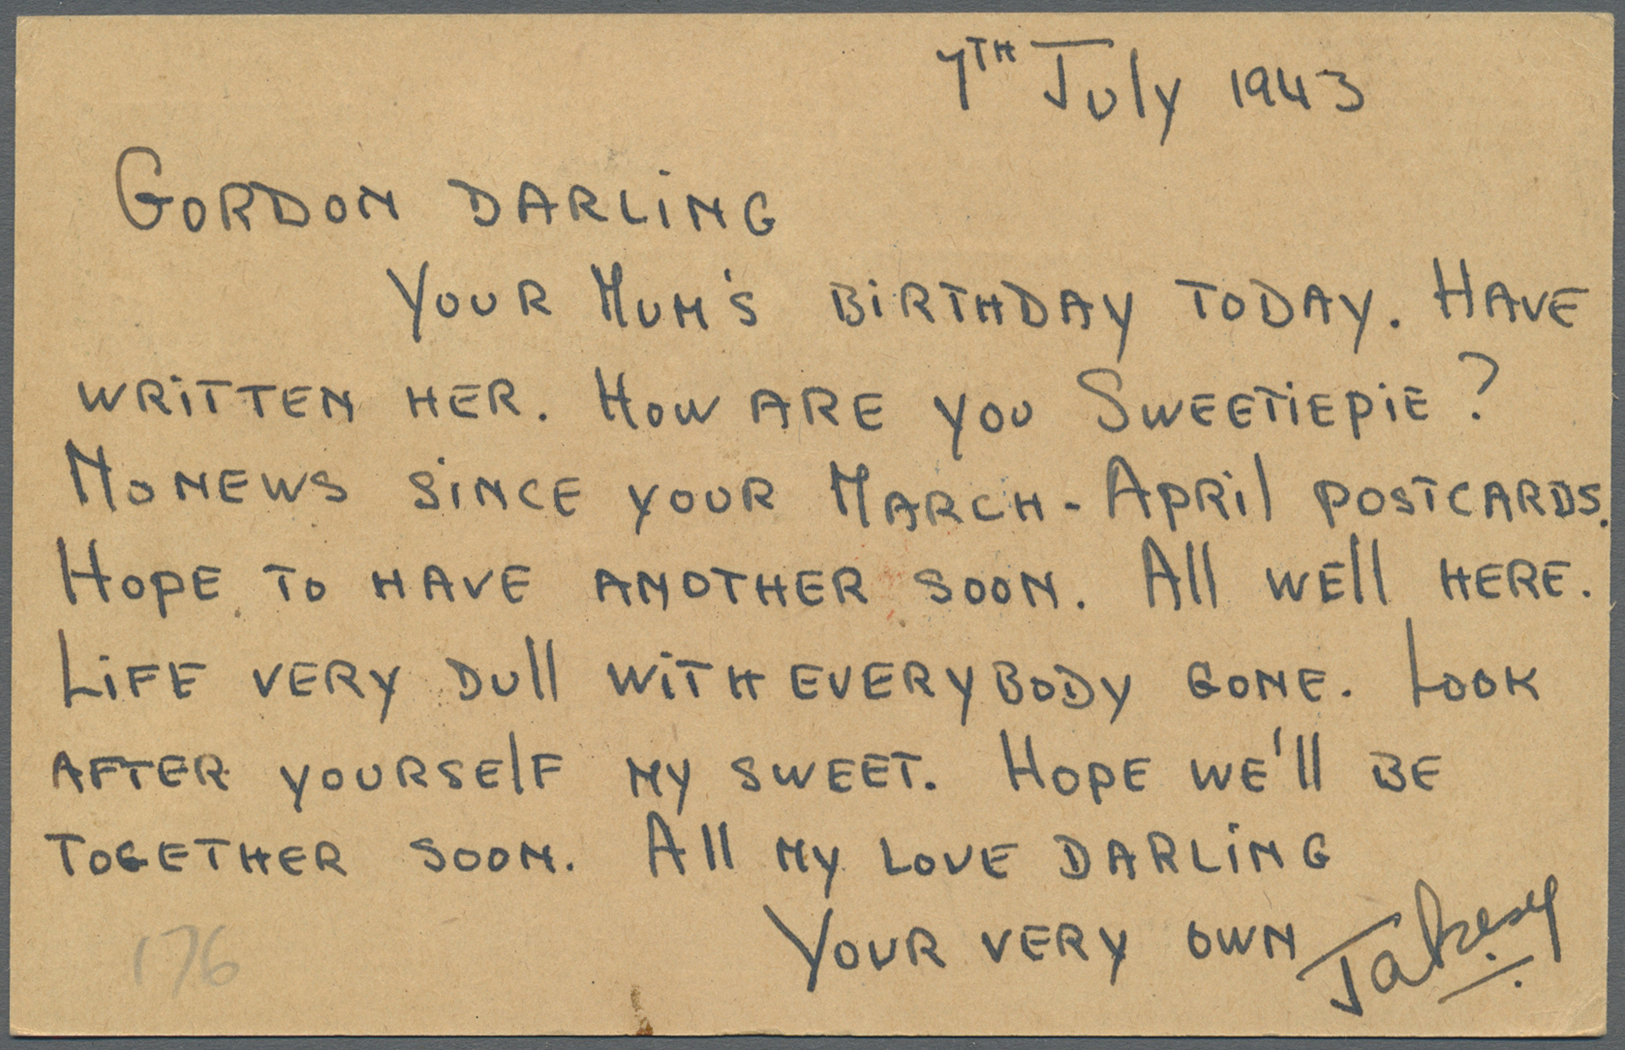 7TH July 1943
GORDON DARLiNG
YOUR MUM'S BiRTHDAY TODAY. HAVE
WRiTTEN HER. HOW ARE YOU SWEETiEPiE?
NO NEWS SiNCE YOUR MARCH - APRil POSTCARDS.
HOPE TO HAVE ANOTHER SOON. All WEll HERE.
LiFE VERY DUll WiTH EVERYBODY GONE. LOOK
AFTER YOURSElF MY SWEET. HOPE WE'll BE
TOGETHER SOON. All MY LOVE DARLiNG
YOUR VERY OWN Jakesy
176